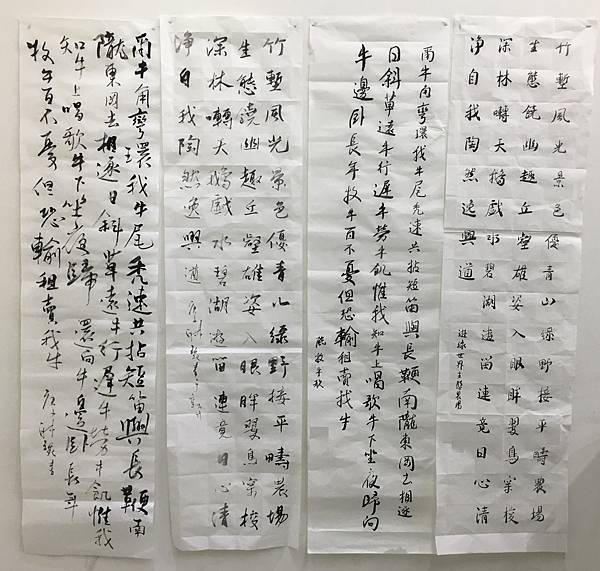 竹塹風光景色優青山綠野接平疇農場
生態饒幽趣丘壑雄姿入眼眸翠鳥穿梭
深林囀天鵝戲水碧湖遊留連竟日心清
淨自我陶然逸興遒
遊綠世界生態農場
爾牛角彎環我牛尾禿速共拈短笛與長鞭南隴東岡去相逐
日斜草遠牛行遲牛勞牛飢惟我知牛上唱歌牛下坐夜歸向
牛邊臥長年牧牛百不憂但恐輸租賣我牛
竹塹風光景色優青山綠野接平疇農場
生態饒幽趣丘壑雄姿入眼眸翠鳥穿梭
深林囀天鵝戲水碧湖遊留連竟日心清
淨自我陶然逸興遒
爾牛角彎環我牛尾禿速共拈短笛與長鞭南
隴東岡去相逐日斜草遠牛行遲牛勞牛飢惟我
知牛上唱歌牛下坐夜歸還向牛邊臥長年
牧牛百不憂但恐輸租賣我牛